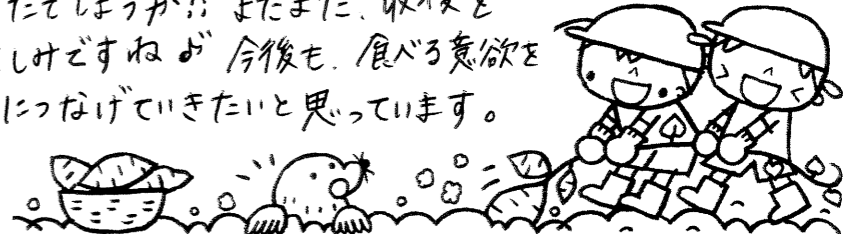 たでしょうか!! まだまだ、収穫を
しみですね♪ 今後も、食べる意欲を
につなげていきたいと思っています。